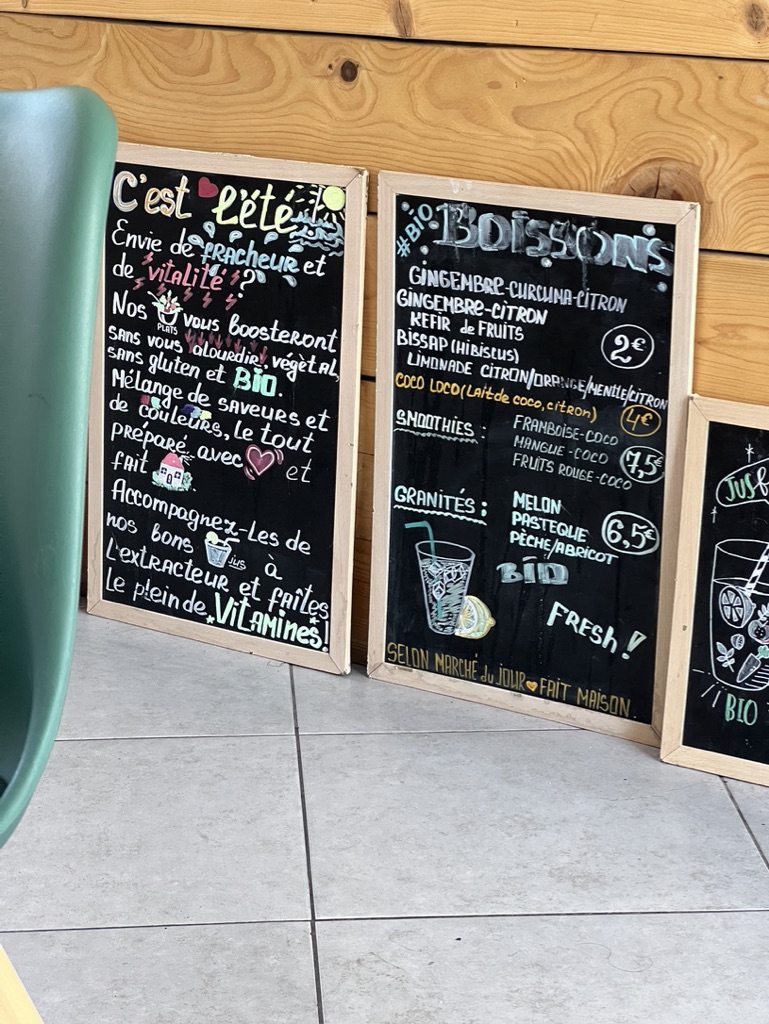 C'est l'été
Envie de fraîcheur et
de vitalité ?
Nos
PLATS
vous boosteront
sans vous alourdir, végétal,
sans gluten et BIO.
Mélange de saveurs et
de couleurs, le tout
préparé avec et
fait
Accompagnez-les de
nos bons jus à
L'extracteur et faîtes
Le plein de Vitamines!
#BIO
BOISSONS
GINGEMBRE-CURCUMA-CITRON
GINGEMBRE-CITRON
KEFIR de FRUITS
BISSAP (HIBISCUS)
2€
LIMONADE CITRON/ORANGE/MENTHE/CITRON
COCO LOCO (Lait de coco, citron)
4€
SMOOTHIES :
FRAMBOISE-COCO
MANGUE-COCO
FRUITS ROUGE-COCO
7,5€
GRANITÉS :
MELON
PASTEQUE
PÈCHE/ABRICOT
6,5€
BIO
FRESH!
SELON MARCHÉ du JOUR FAIT MAISON
JUS
BIO